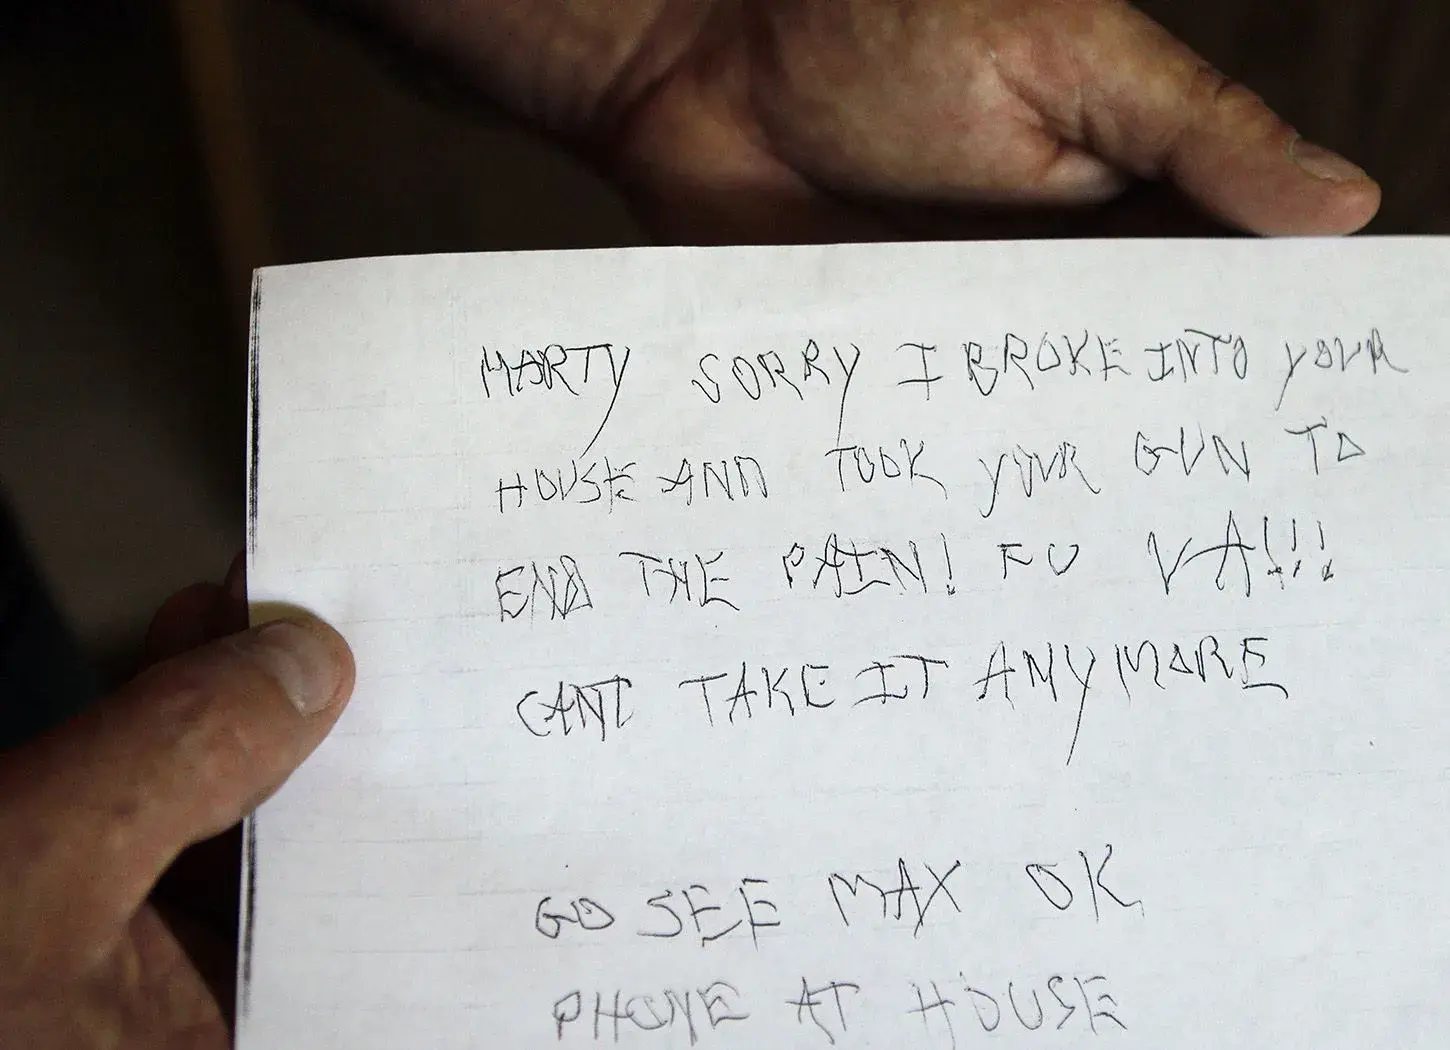 MARTY SORRY I BROKE INTO YOUR
HOUSE AND TOOK YOUR GUN TO
END THE PAIN! FU VA!!!
CANT TAKE IT ANYMORE
GO SEE MAX OK
PHONE AT HOUSE